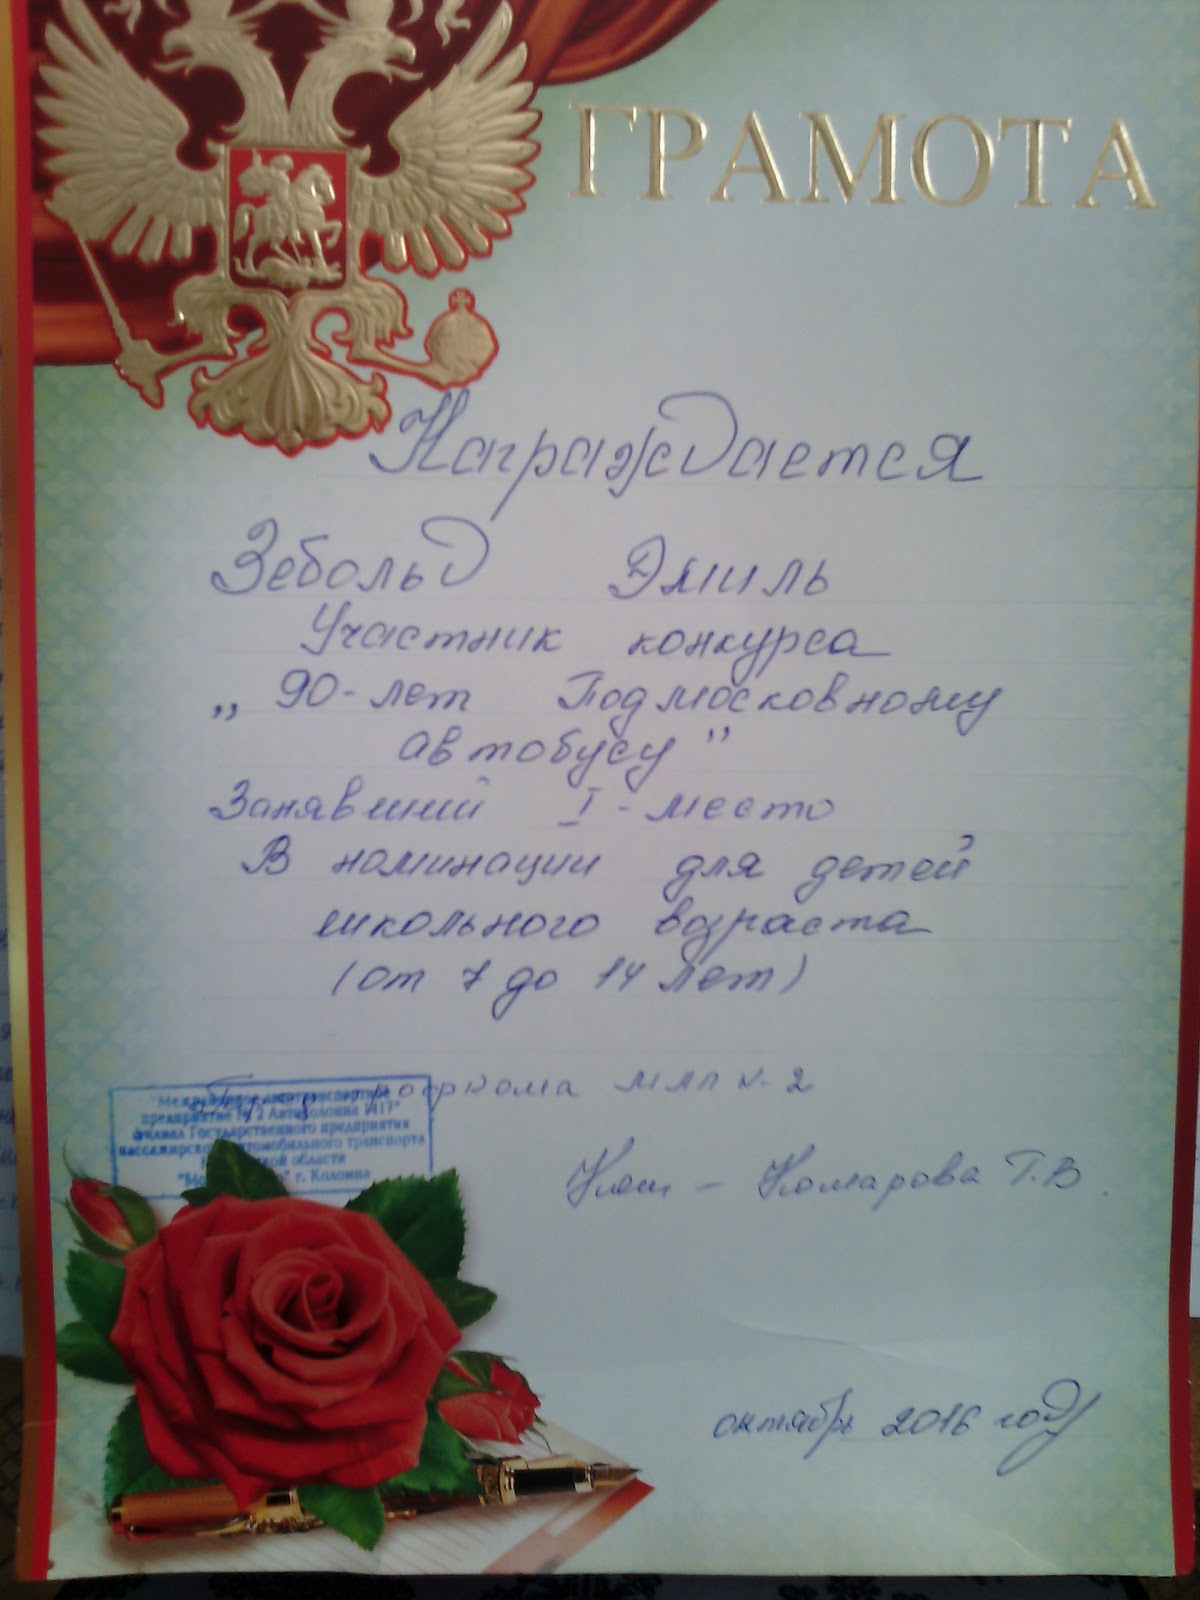 ГРАМОТА
Награждается
Зебольд Эмиль
Участник конкурса
„90-лет Подмосковному
автобусу”
Занявший I-место
В номинации для детей
школьного возраста
(от 7 до 14 лет)
профкома МАП № 2
"Межрайонное автотранспортное
предприятие № 2 Автоколонна 1417"
филиал Государственного предприятия
пассажирского автомобильного транспорта
области
г. Коломна
Комарова Т.В.
октябрь 2016 год